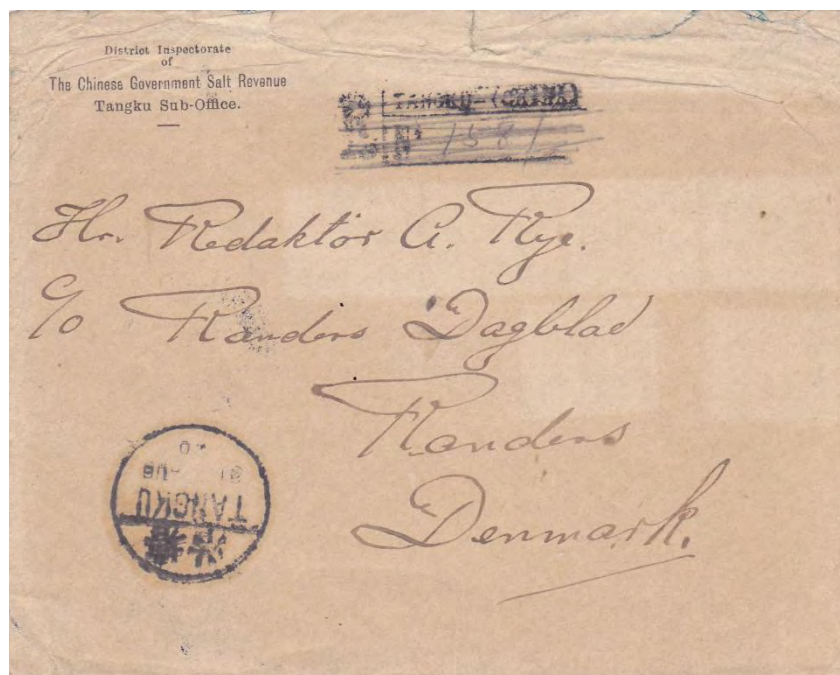 District Inspectorate
of
The Chinese Government Salt Revenue
Tangku Sub-Office.
TANGKU-(CHINA)
1581
Hr. Redaktör A. Rye.
c/o Randers Dagblad
Randers
Denmark.
TANGKU